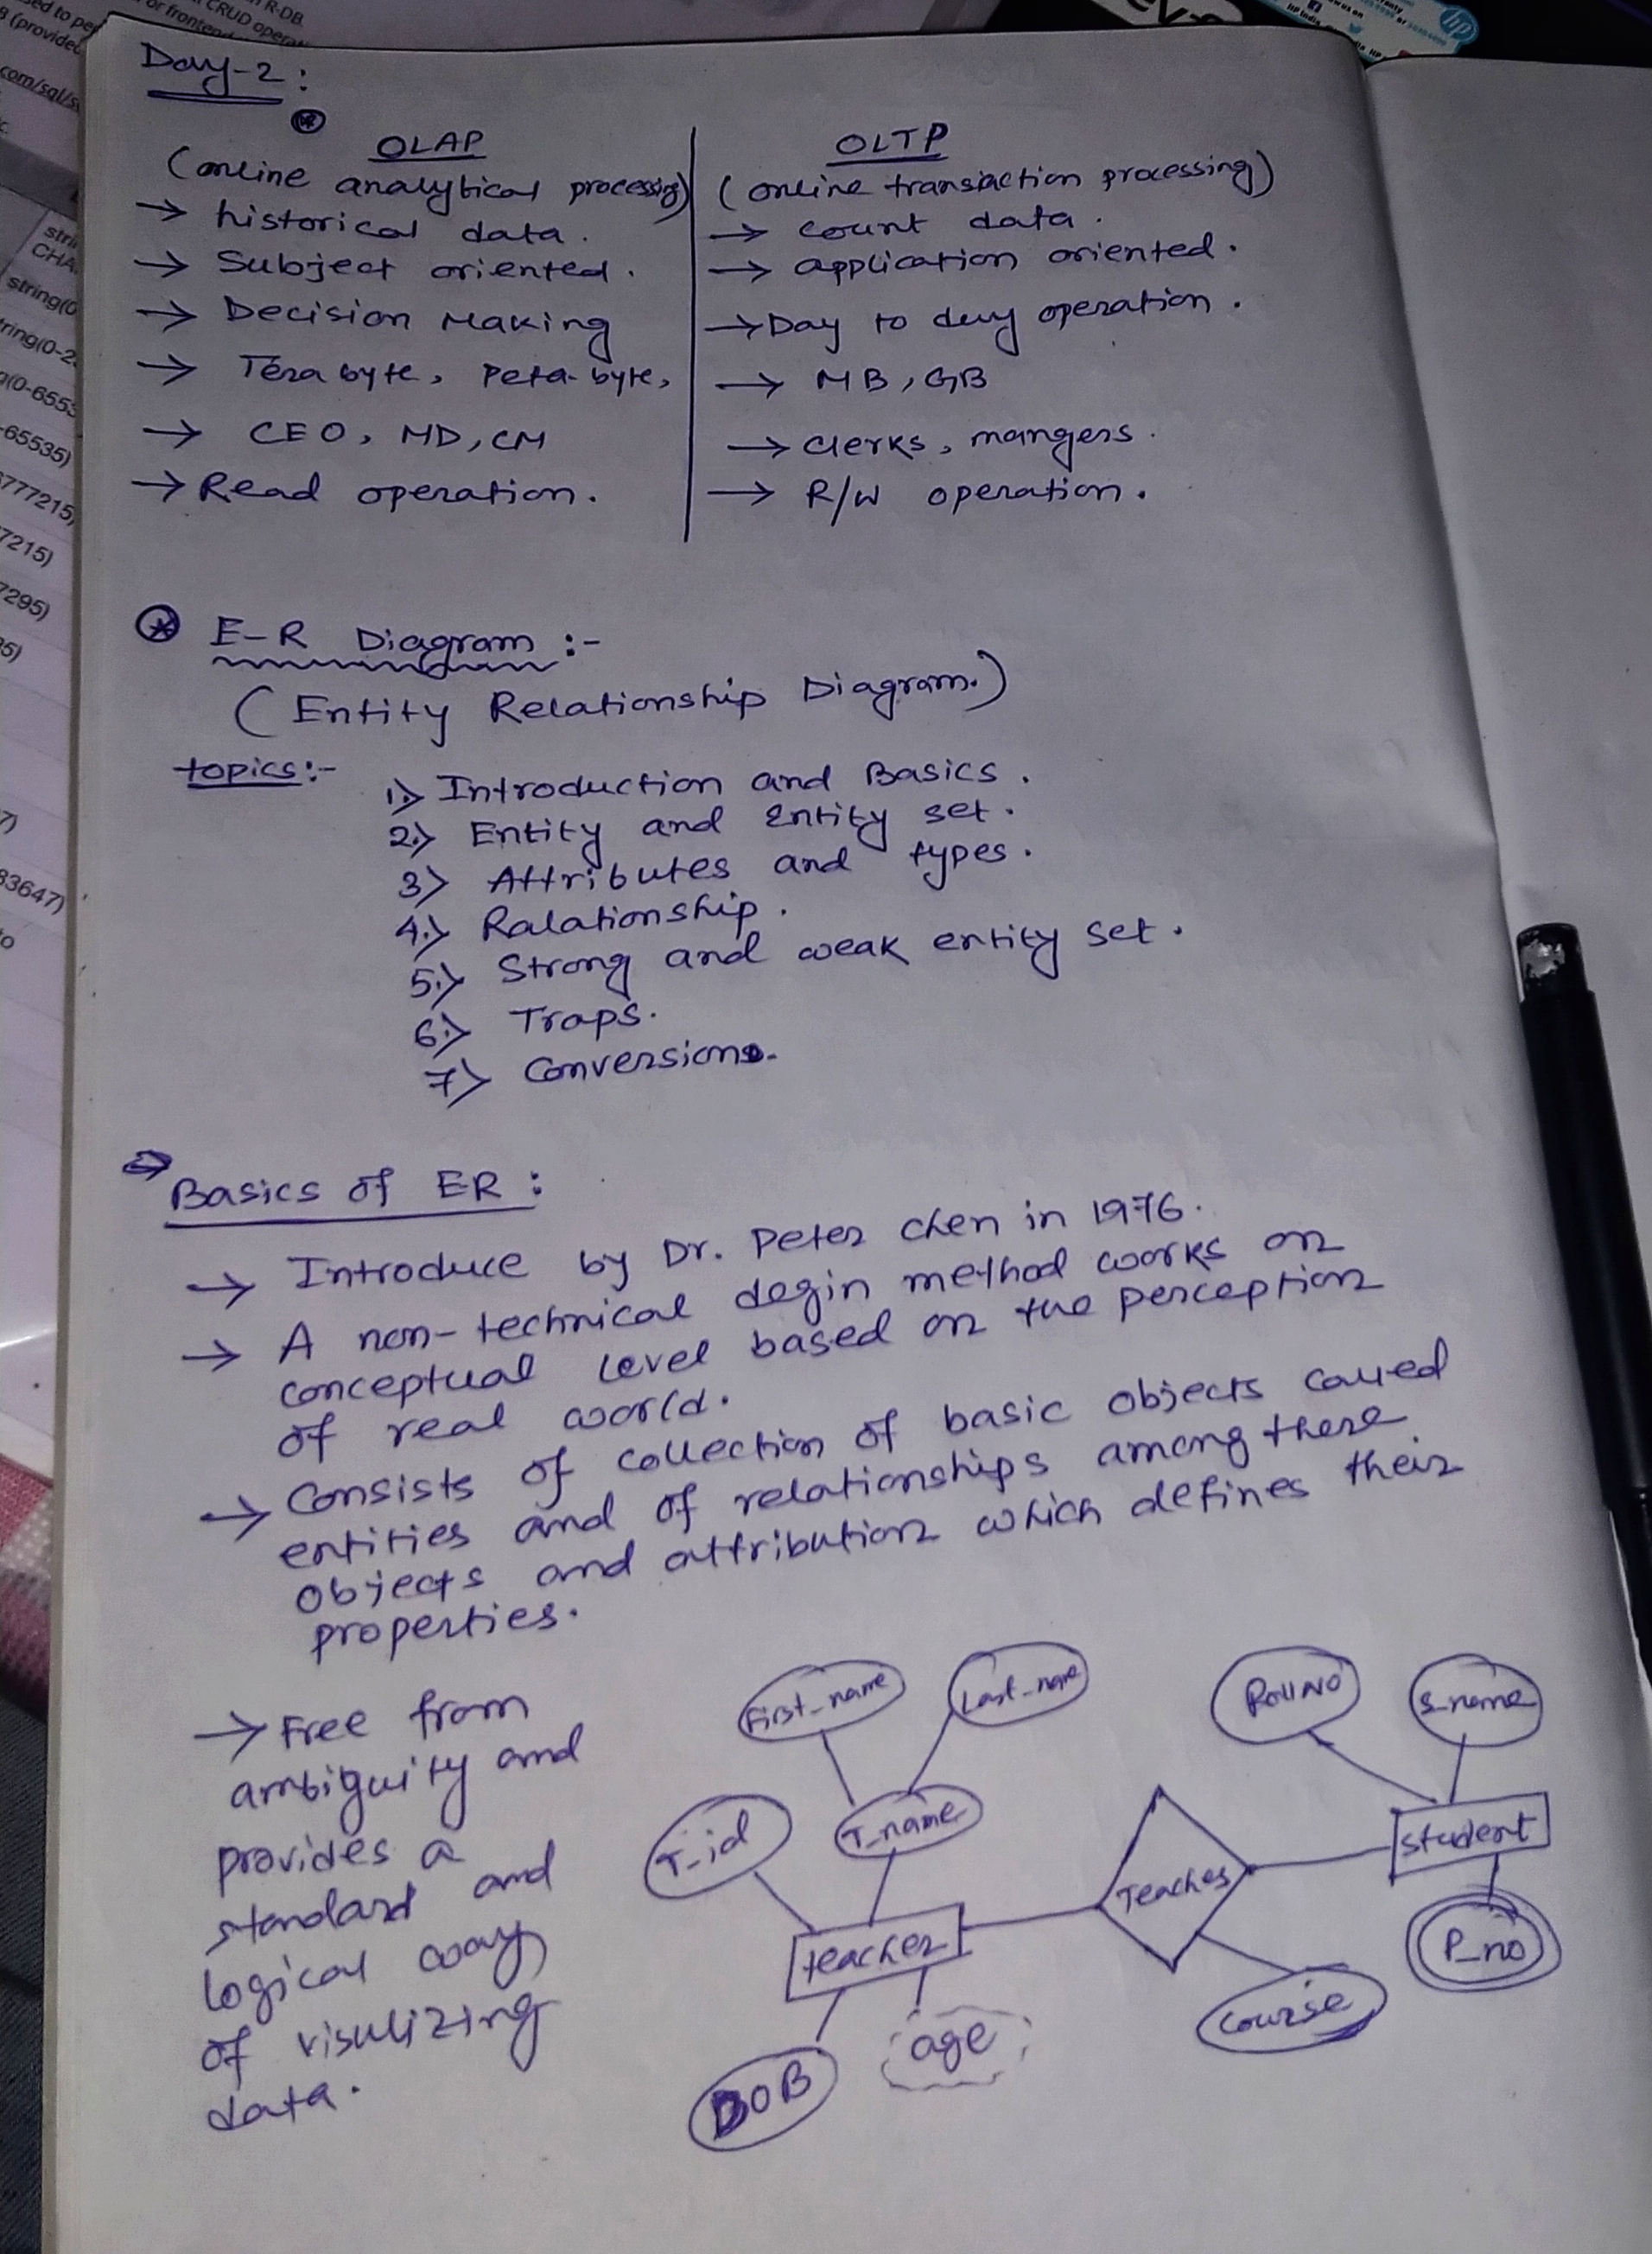 R-DB.
CRUD opera
or fronten
com/sql/s
CHA
string(0
tring(0-2
(0-6553
-65535)
777215)
7215)
7295)
5)
7)
83647)
to
hp
Day-2 :
OLAP
(online analytical processing)
→ historical data.
→ Subject oriented.
→ Decision Making
→ Tera byte, Peta-byte,
→ CEO, MD, CM
→ Read operation.
OLTP
(online transaction processing)
→ count data.
→ application oriented.
→ Day to day operation.
→ MB, GB
→ clerks, mangers.
→ R/W operation.
E-R Diagram :-
(Entity Relationship Diagram.)
topics:-
1.> Introduction and Basics.
2.> Entity and Entity set.
3> Attributes and types.
4.> Ralationship.
5.> Strong and weak entity set.
6.> Traps.
7> Conversions.
⇒ Basics of ER :
→ Introduce by Dr. Peter chen in 1976.
→ A non-technical degin method works on
conceptual level based on the perception
of real world.
→ Consists of collection of basic objects called
entities and of relationships among these
objects and attribution which defines their
properties.
→ Free from
ambiguity and
provides a
standard and
logical way
of visulizing
data.
First_name
Last_name
RollNo
S_name
T_id
T_name
Teaches
student
teacher
P_no
course
age
DOB